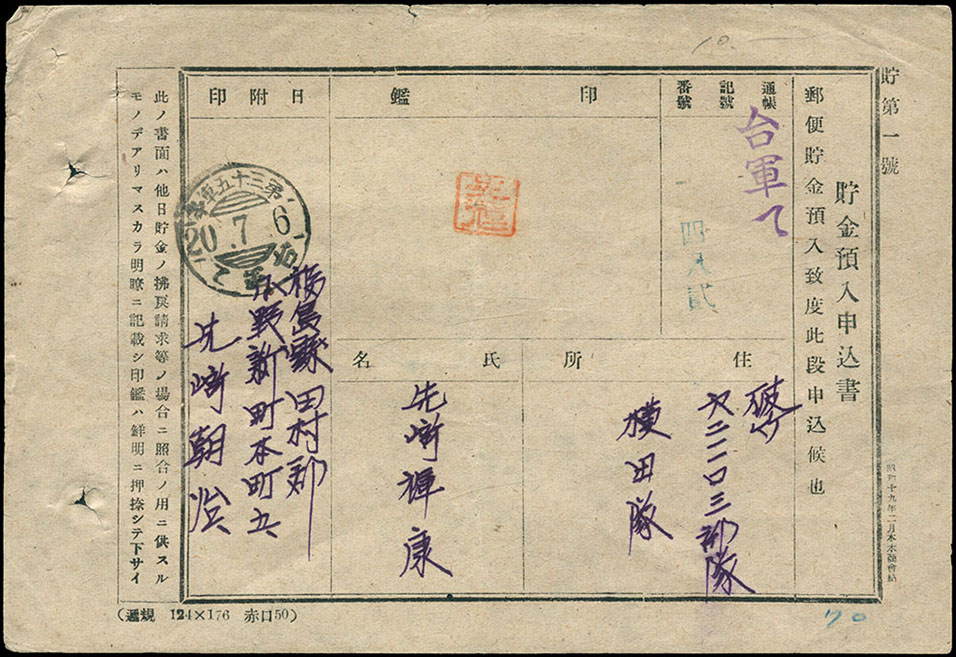 貯第一號
貯金預入申込書
郵便貯金預入致度此段申込候也
通帳
記號
番號
台軍て
四八貳
印
鑑
日附印
第三十五軍事
20.7.6
台軍て
住所
氏名
横田隊
先崎輝康
福島縣田村郡
小野新町本町五
先崎朝治
此ノ書面ハ他日貯金ノ拂戻請求等ノ場合ニ照合ノ用ニ供スル
モノデアリマスカラ明瞭ニ記載シ印鑑ハ鮮明ニ押捺シテ下サイ
(遞規 124×176 赤口50)
10.—
70